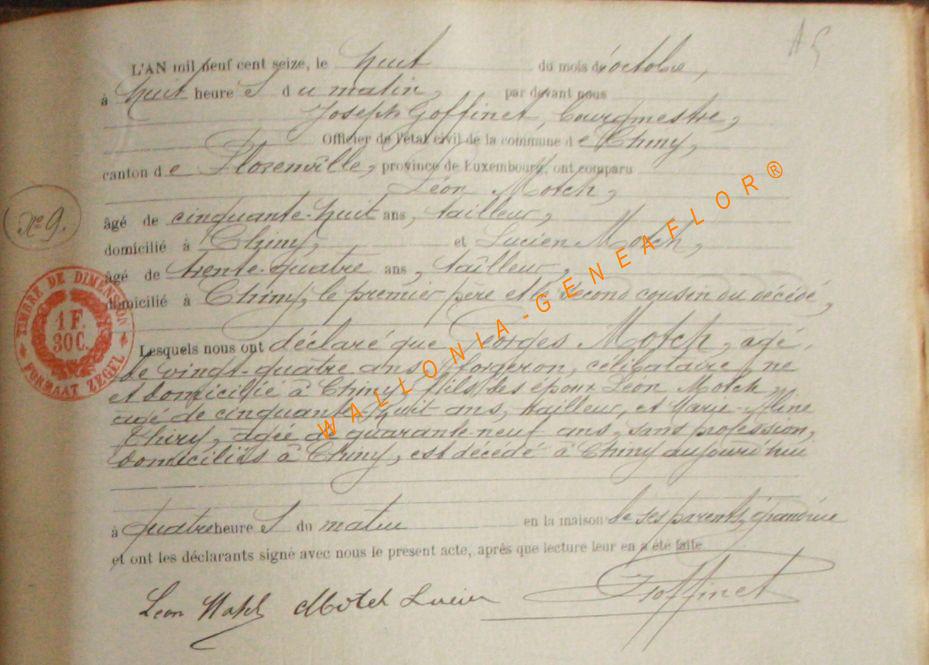 L'AN mil neuf cent seize, le huit du mois d'octobre,
à huit heures du matin, par devant nous
Joseph Goffinet, Bourgmestre,
Officier de l'état civil de la commune de Chiny,
canton de Florenville, province de Luxembourg, ont comparu
Léon Motch,
âgé de cinquante-huit ans, tailleur,
domicilié à Chiny, et Lucien Motch,
âgé de trente-quatre ans, tailleur,
domicilié à Chiny, le premier père et le second cousin du décédé,
Lesquels nous ont déclaré que Georges Motch, âgé
de vingt-quatre ans, forgeron, célibataire, né
et domicilié à Chiny, fils des époux Léon Motch,
âgé de cinquante-huit ans, tailleur, et Marie-Aline
Thiry, âgée de quarante-neuf ans, sans profession,
domiciliés à Chiny, est décédé à Chiny aujourd'hui
à quatre heures du matin en la maison de ses parents, grand'rue
et ont les déclarants signé avec nous le présent acte, après que lecture leur en a été faite.
Léon Motch Motch Lucien J Goffinet
No 9.
TIMBRE DE DIMENSION
1 F.
30 C.
FORMAAT ZEGEL
WALLONIA-GENEAFLOR®